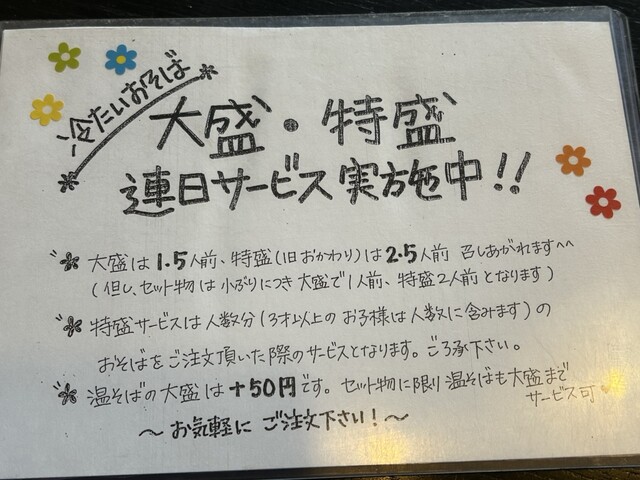 冷たいおそば
大盛・特盛
連日サービス実施中!!
大盛は1.5人前、特盛(旧おかわり)は2.5人前 召しあがれます^^
(但し、セット物は小ぶりにつき大盛で1人前、特盛2人前となります)
特盛サービスは人数分(3才以上のお子様は人数に含みます)の
おそばをご注文頂いた際のサービスとなります。ご了承下さい。
温そばの大盛は+50円です。セット物に限り温そばも大盛まで
サービス可
〜お気軽にご注文下さい!〜